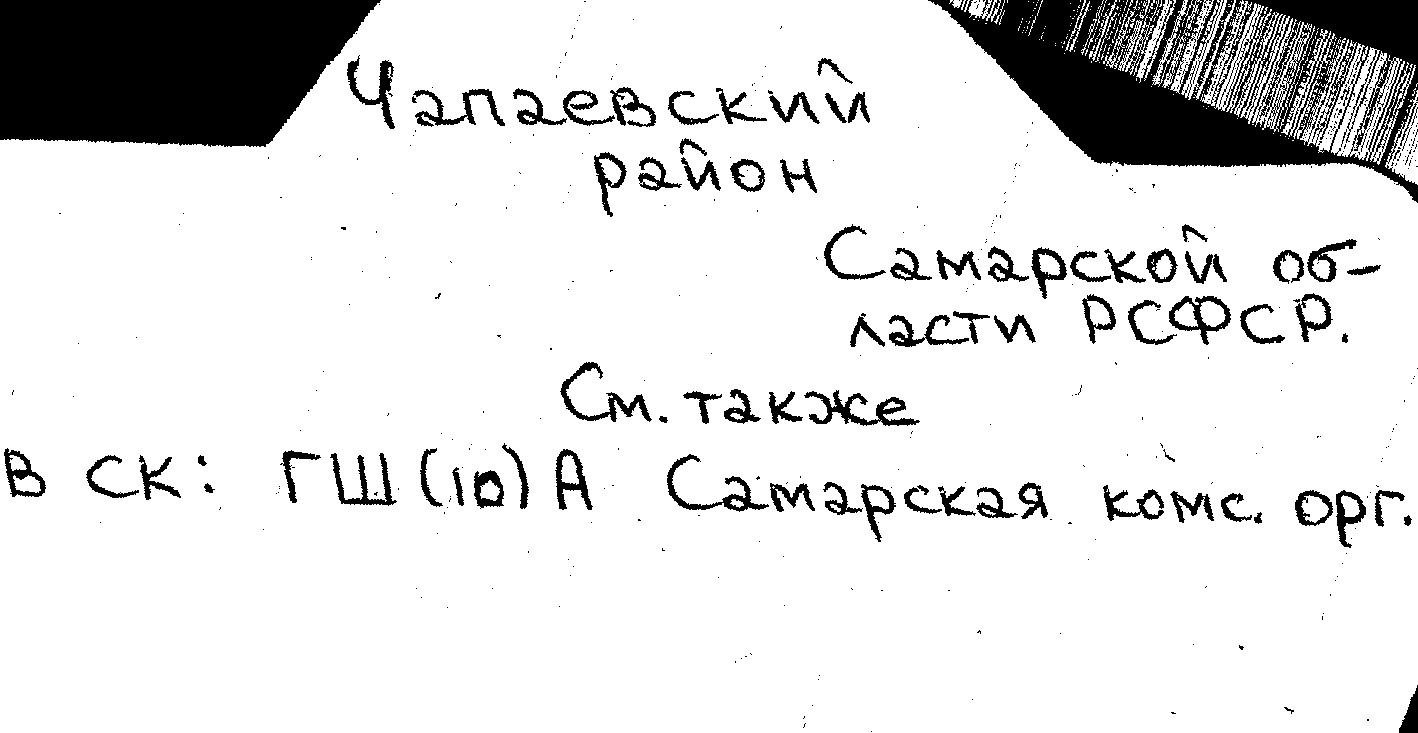 Чапаевский
район
Самарской об-
ласти РСФСР.
См. также
В СК: ГШ(10)А Самарская комс. орг.